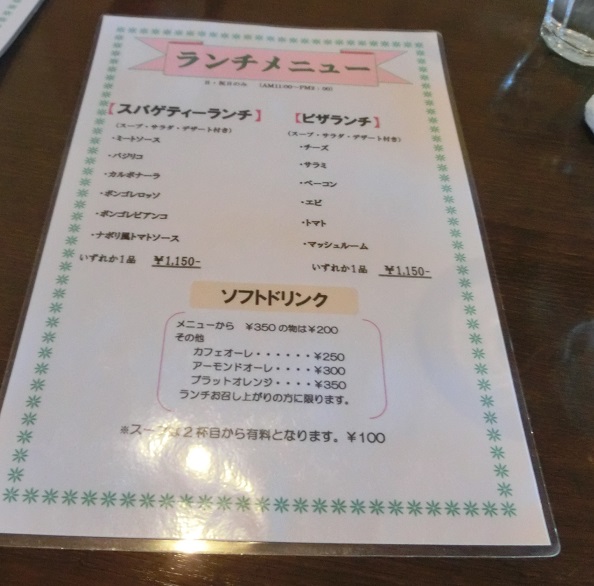 ランチメニュー
日・祝日のみ (AM11:00~PM2:00)
【スパゲティーランチ】
(スープ・サラダ・デザート付き)
・ミートソース
・バジリコ
・カルボナーラ
・ボンゴレロッソ
・ボンゴレビアンコ
・ナポリ風トマトソース
いずれか1品 ¥1,150-
【ピザランチ】
(スープ・サラダ・デザート付き)
・チーズ
・サラミ
・ベーコン
・エビ
・トマト
・マッシュルーム
いずれか1品 ¥1,150-
ソフトドリンク
メニューから ¥350の物は¥200
その他
カフェオーレ・・・・・・¥250
アーモンドオーレ・・・・¥300
ブラットオレンジ・・・・¥350
ランチお召し上がりの方に限ります。
※スープは2杯目から有料となります。¥100